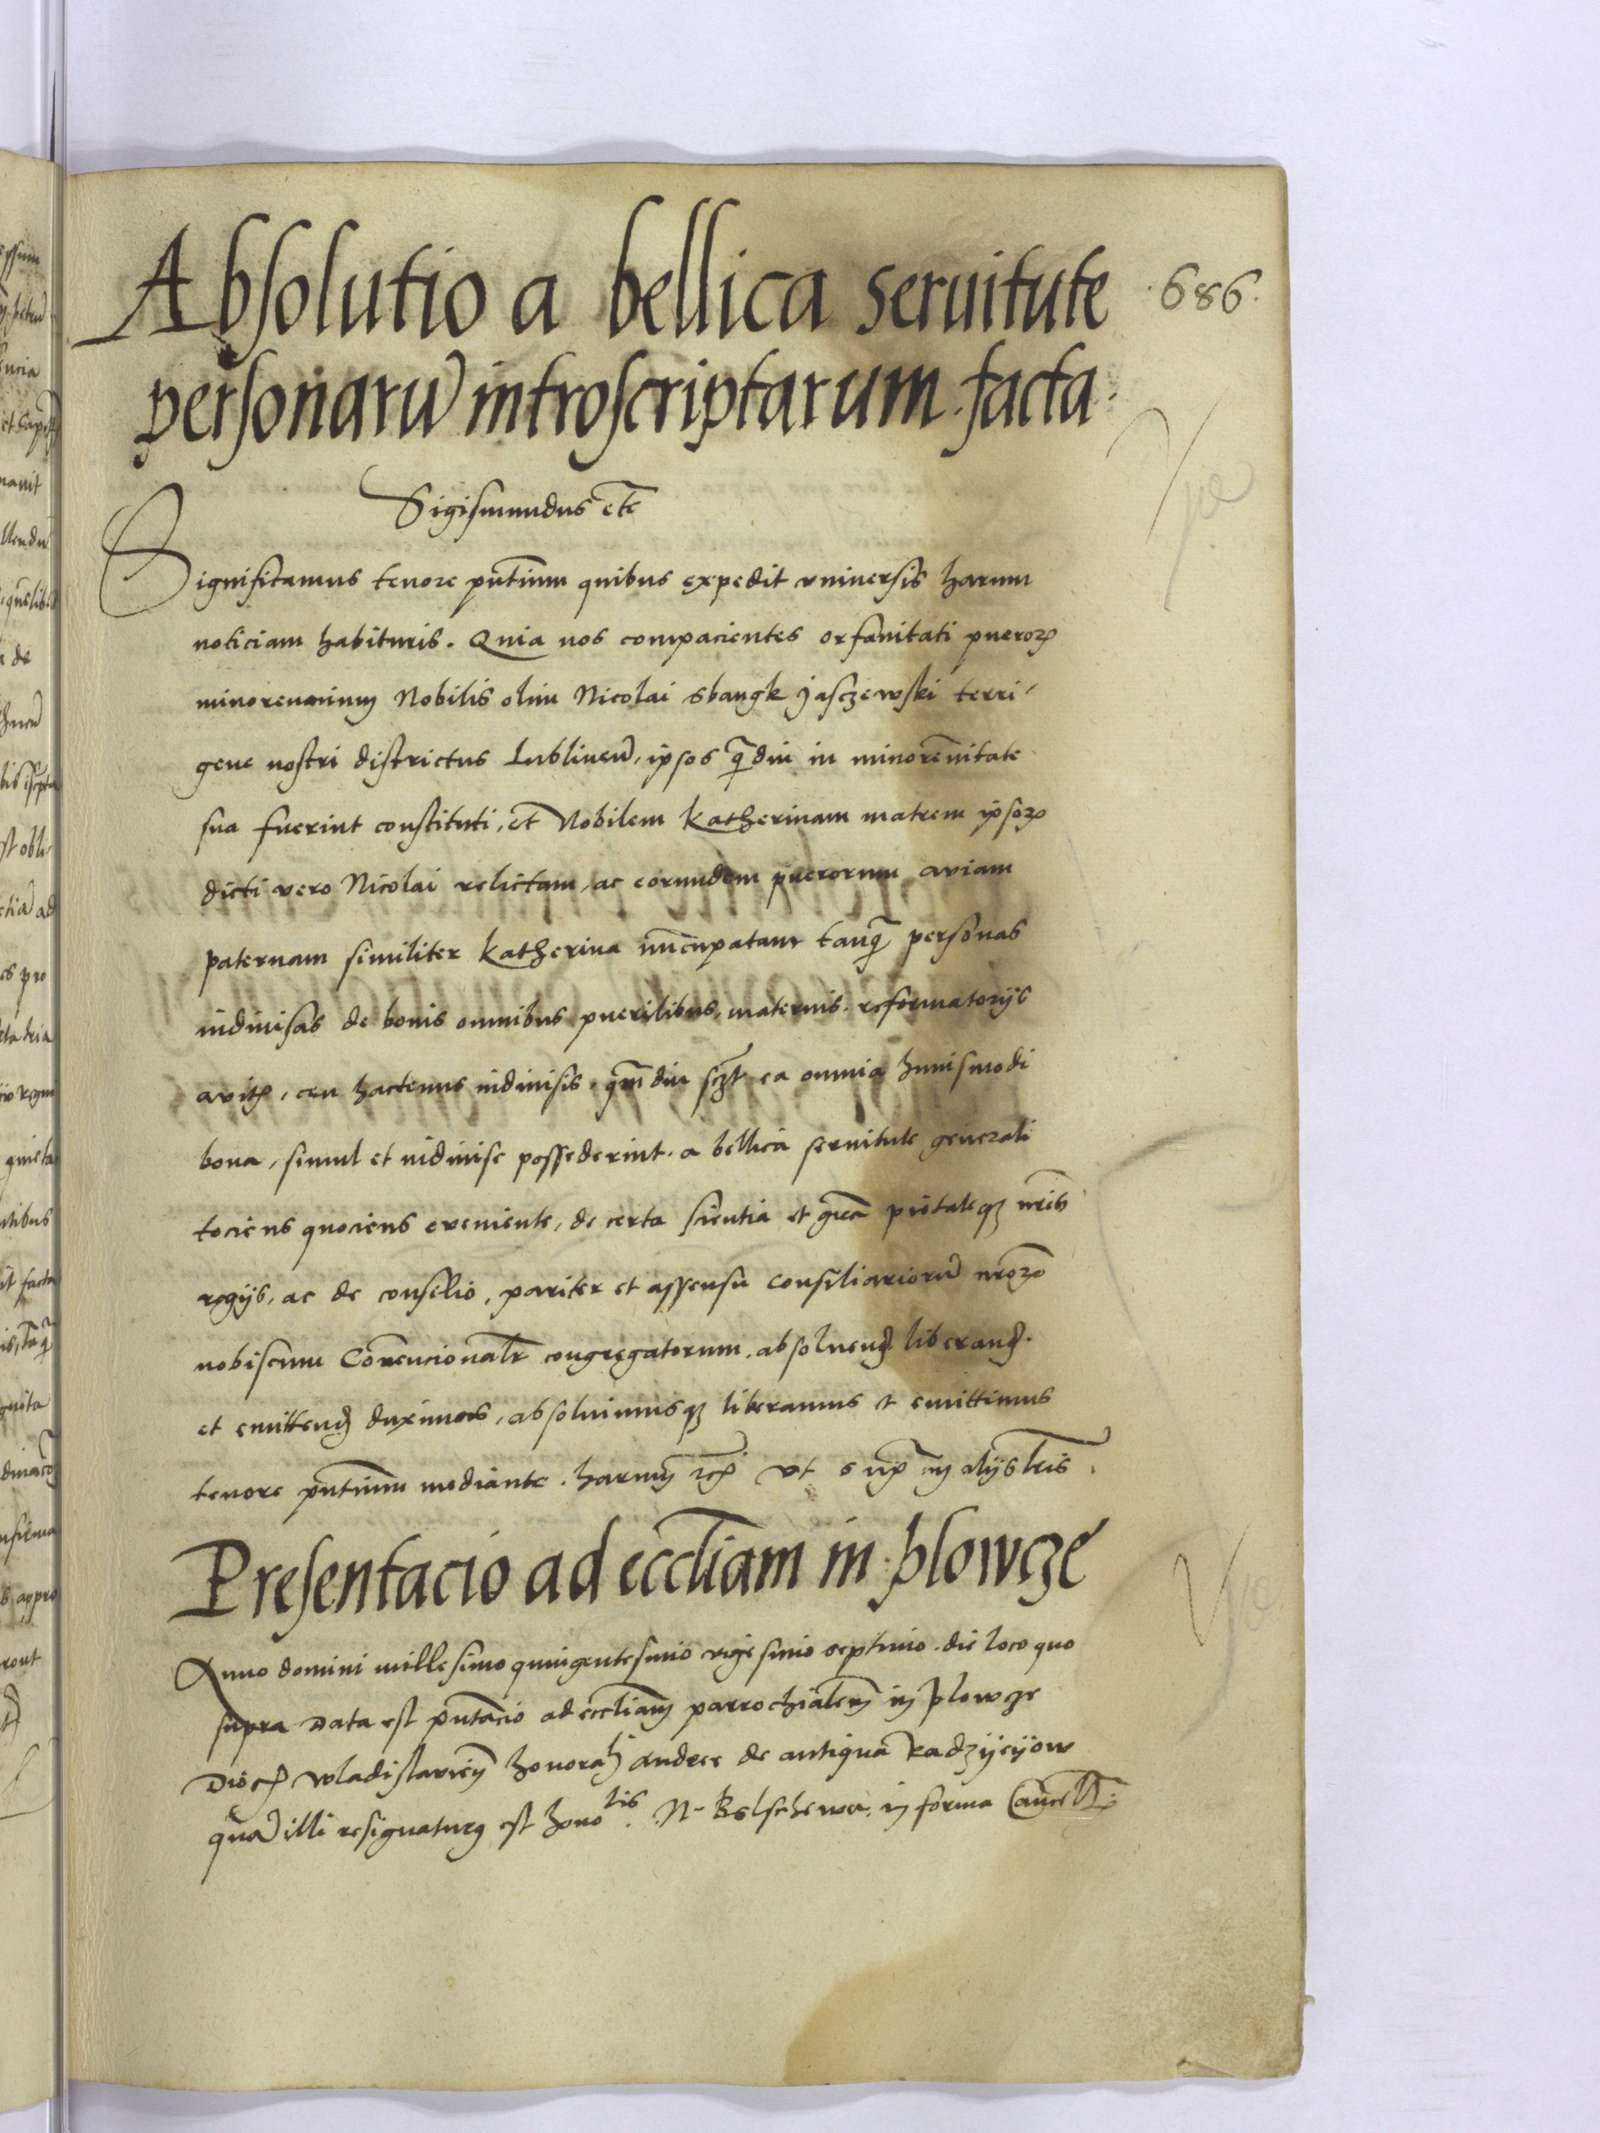 Absolutio a bellica seruitute
·686·
personarū introscriptarum facta
Sigismundus etc̄
Significamus tenore pn̄tium quibus expedit vniuersis harum
noticiam habituris. Quia nos compacientes orfanitati pueroꝝ
minorennium Nobilis olim Nicolai sbangk Jasczewski terri⸗
gene nostri districtus Lublinen̄, ipsos q̄diu in minorēnitate
sua fuerint constituti, et Nobilem Katherinam matrem ipsoꝝ
dicti vero Nicolai relictam, ac eorundem puerorum aviam
paternam similiter Katherina nūcupatam tanq̄ personas
indiuisas de bonis omnibus puerilibus, maternis, reformatorijs
ceu hactenus indiuisis, qm̄diu ea omnia huiusmodi
bona, simul et indiuise possederint, a bellica seruitute generali
tociens quociens eveniente, de certa scientia et
regijs, ac de consilio, pariter et assensu Consiliariorū nr̄oꝝ
nobiscum congregatorum, absoluend̄ liberand̄
et emittend̄ duximus, absoluimusqꝫ liberamus et emittimus
tenore pn̄tium mediante. harum vt in alijs lr̄is.
Presentacio ad eccl̄iam in plowcze
Anno domini millesimo quingentesimo vigesimo septimo die loco quo
supra Data est pn̄tacio ad eccl̄iam parrochialem in plowcze
wladislavien̄ Andree de antiqua Radzijeijow
illi resignaturꝰ est N in forma Cancell̄